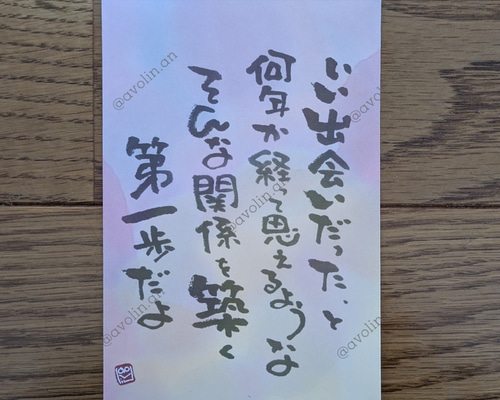 いい出会いだったと
何年か経って思えるような
そんな関係を築く
第一歩だよ
@avolin.an
@avolin.an
@avolin.an
@avolin.an
@avolin.an
@avolin.an
@avolin.an